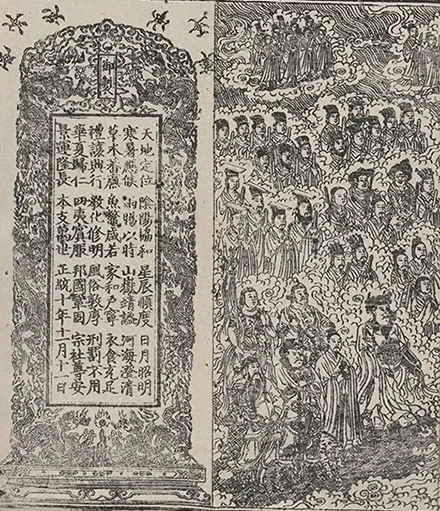 御製
天地定位陰陽協和星辰順度日月昭明
寒暑應候雨暘以時山嶽靖謐河海澄清
草木蕃廡魚鼈咸若家和戶寧衣食充足
禮讓興行教化修明風俗敦厚刑罰不用
華夏歸仁四夷賓服邦國鞏固宗社尊安
景運隆長本支萬世正統十年十一月十一日